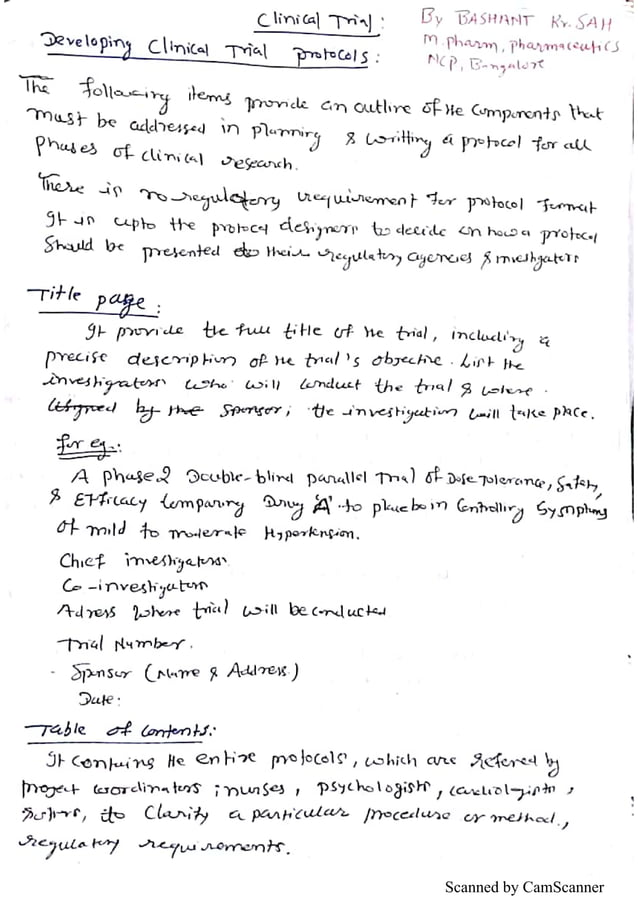 Clinical Trial:
By BASHANT Kr. SAH
M.pharm, pharmaceutics
NCP, Bangalore
Developing Clinical Trial protocols:
The following items provide an outline of the components that
must be addressed in planning & writting a protocol for all
phases of clinical research.
There is no regulatory requirement for protocol format
It is upto the protocol designers to decide on how a protocol
should be presented to their regulatory agencies & investigators
Title page:
It provide the full title of the trial, including a
precise description of the trial's objective. List the
investigators who will conduct the trial & where
by the sponsor; the investigation will take place.
for eg.:
A phase 2 Double-blind parallel Trial of Dose Tolerance, Safety,
& Efficacy comparing Drug 'A' to placebo in Controlling Symptoms
of mild to moderate Hypertension.
Chief investigators
Co-investigators
Adress where trial will be conducted
Trial Number.
Sponsor (Name & Address)
Date:
Table of contents:
It contains the entire protocols, which are refered by
project coordinators; nurses, psychologists, cardiologists,
to Clarity a particular procedure or method.,
regulatory requirements.
Scanned by CamScanner